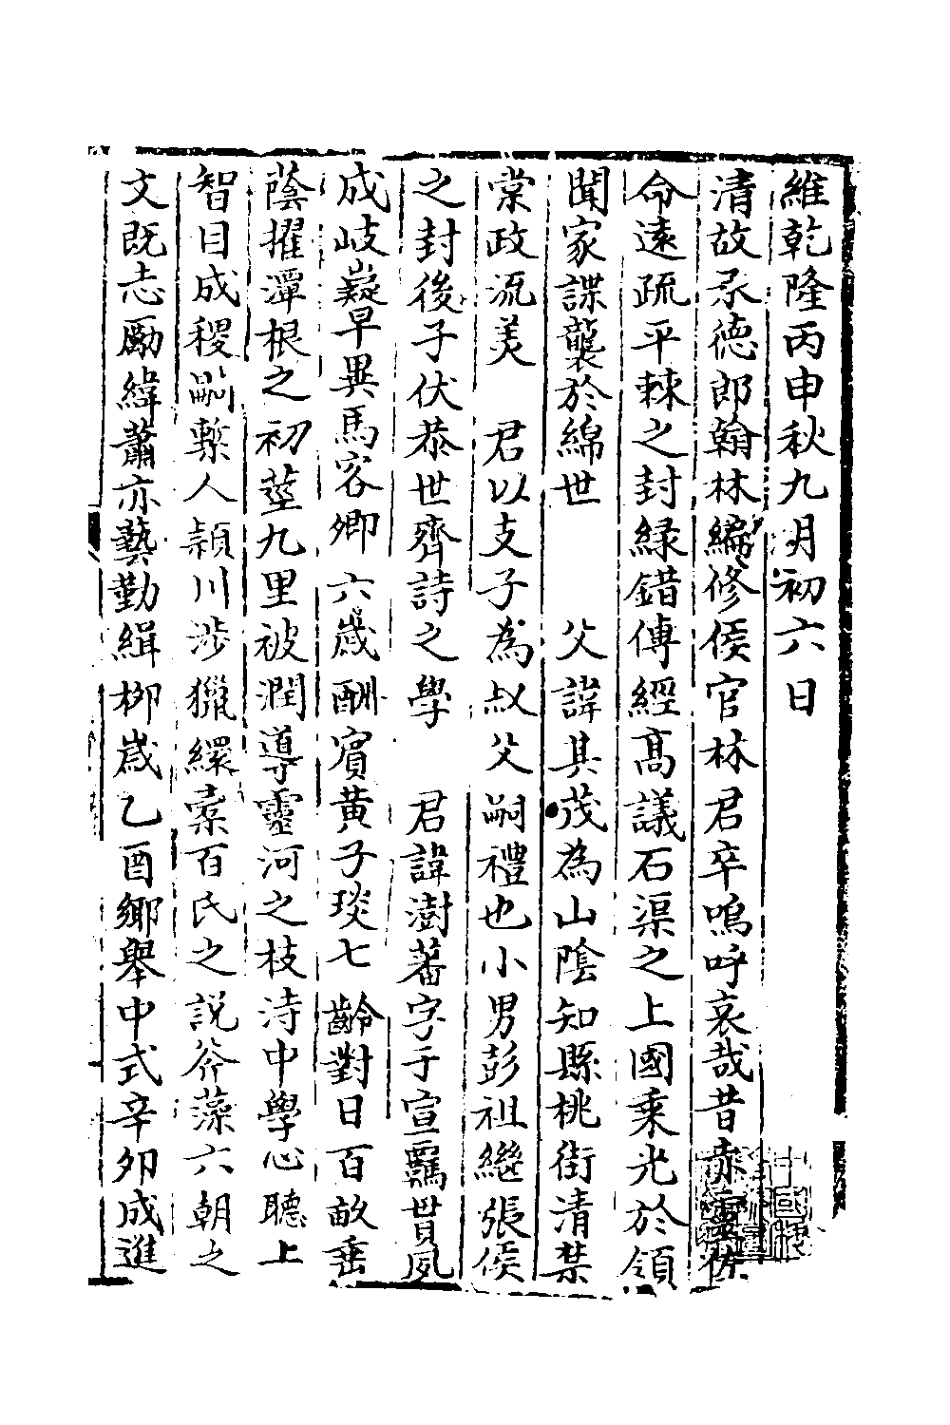 維乾隆丙申秋九月初六日
清故承德郎翰林編修侯官林君卒嗚呼哀哉昔赤靈
命遠疏平棘之封緑錯傳經髙議石渠之上國乘光於領
聞家諜襲於綿世 父諱其茂為山陰知縣桃街清禁
棠政流美 君以支子為叔父嗣禮也小男彭祖繼張侯
之封後子伏恭世齊詩之學 君諱澍蕃字于宣羈貫夙
成岐嶷早異馬客卿六嵗酬賔黄子琰七齡對日百畝垂
蔭擢潭根之初莖九里被潤導靈河之枝洔中學心聽上
智目成稷嗣繫人頴川涉獵繯橐百氏之説芥藻六朝之
文既志勵緯蕭亦藝勤緝柳嵗乙酉鄉舉中式辛夘成進